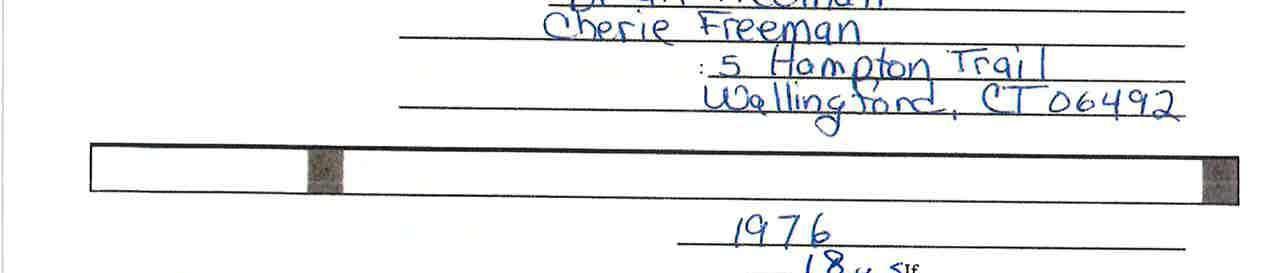 Cherie Freeman
: 5 Hampton Trail
Wallingford, CT 06492
1976
18